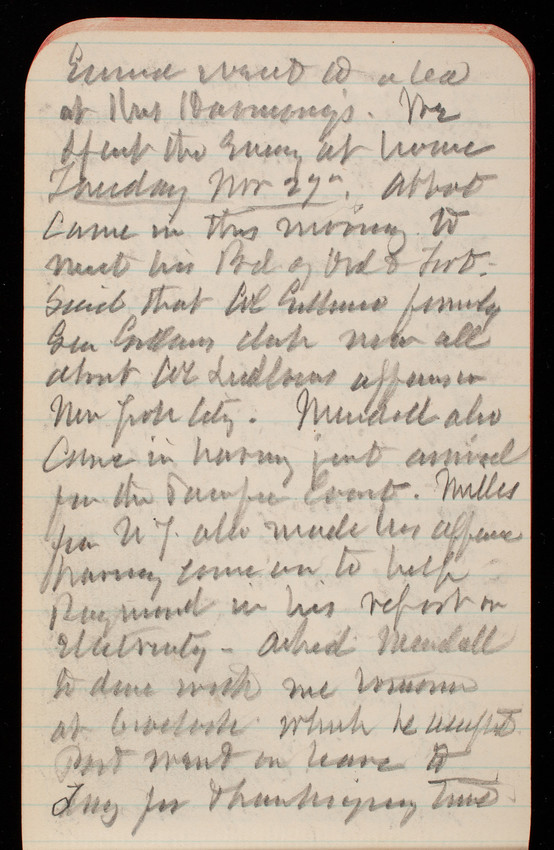 Emma went to a tea
at Mrs Harmony's. We
spent the Eveng at home
Tuesday Nov 27". Abbot
came in this morning to
meet his Bd of Ord & Fort.
Said that Col
Gen clerk new all
about Col Ludlows affairs in
New York City. Mendell also
Came in having just arrived
for the Pacific Coast. Millis
fm N Y. also made his appearance
having come on to help
Raymond in his report on
Electricity - asked Mendell
to dine with me tomorrow
at 6 oclock which he accepts
Post went on leave to
day for Thanksgiving time